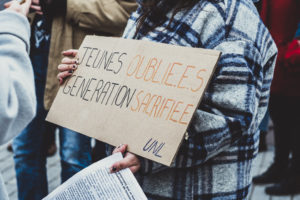 JEUNES OUBLIÉ.E.S
GENERATION SACRIFIÉE
UNL